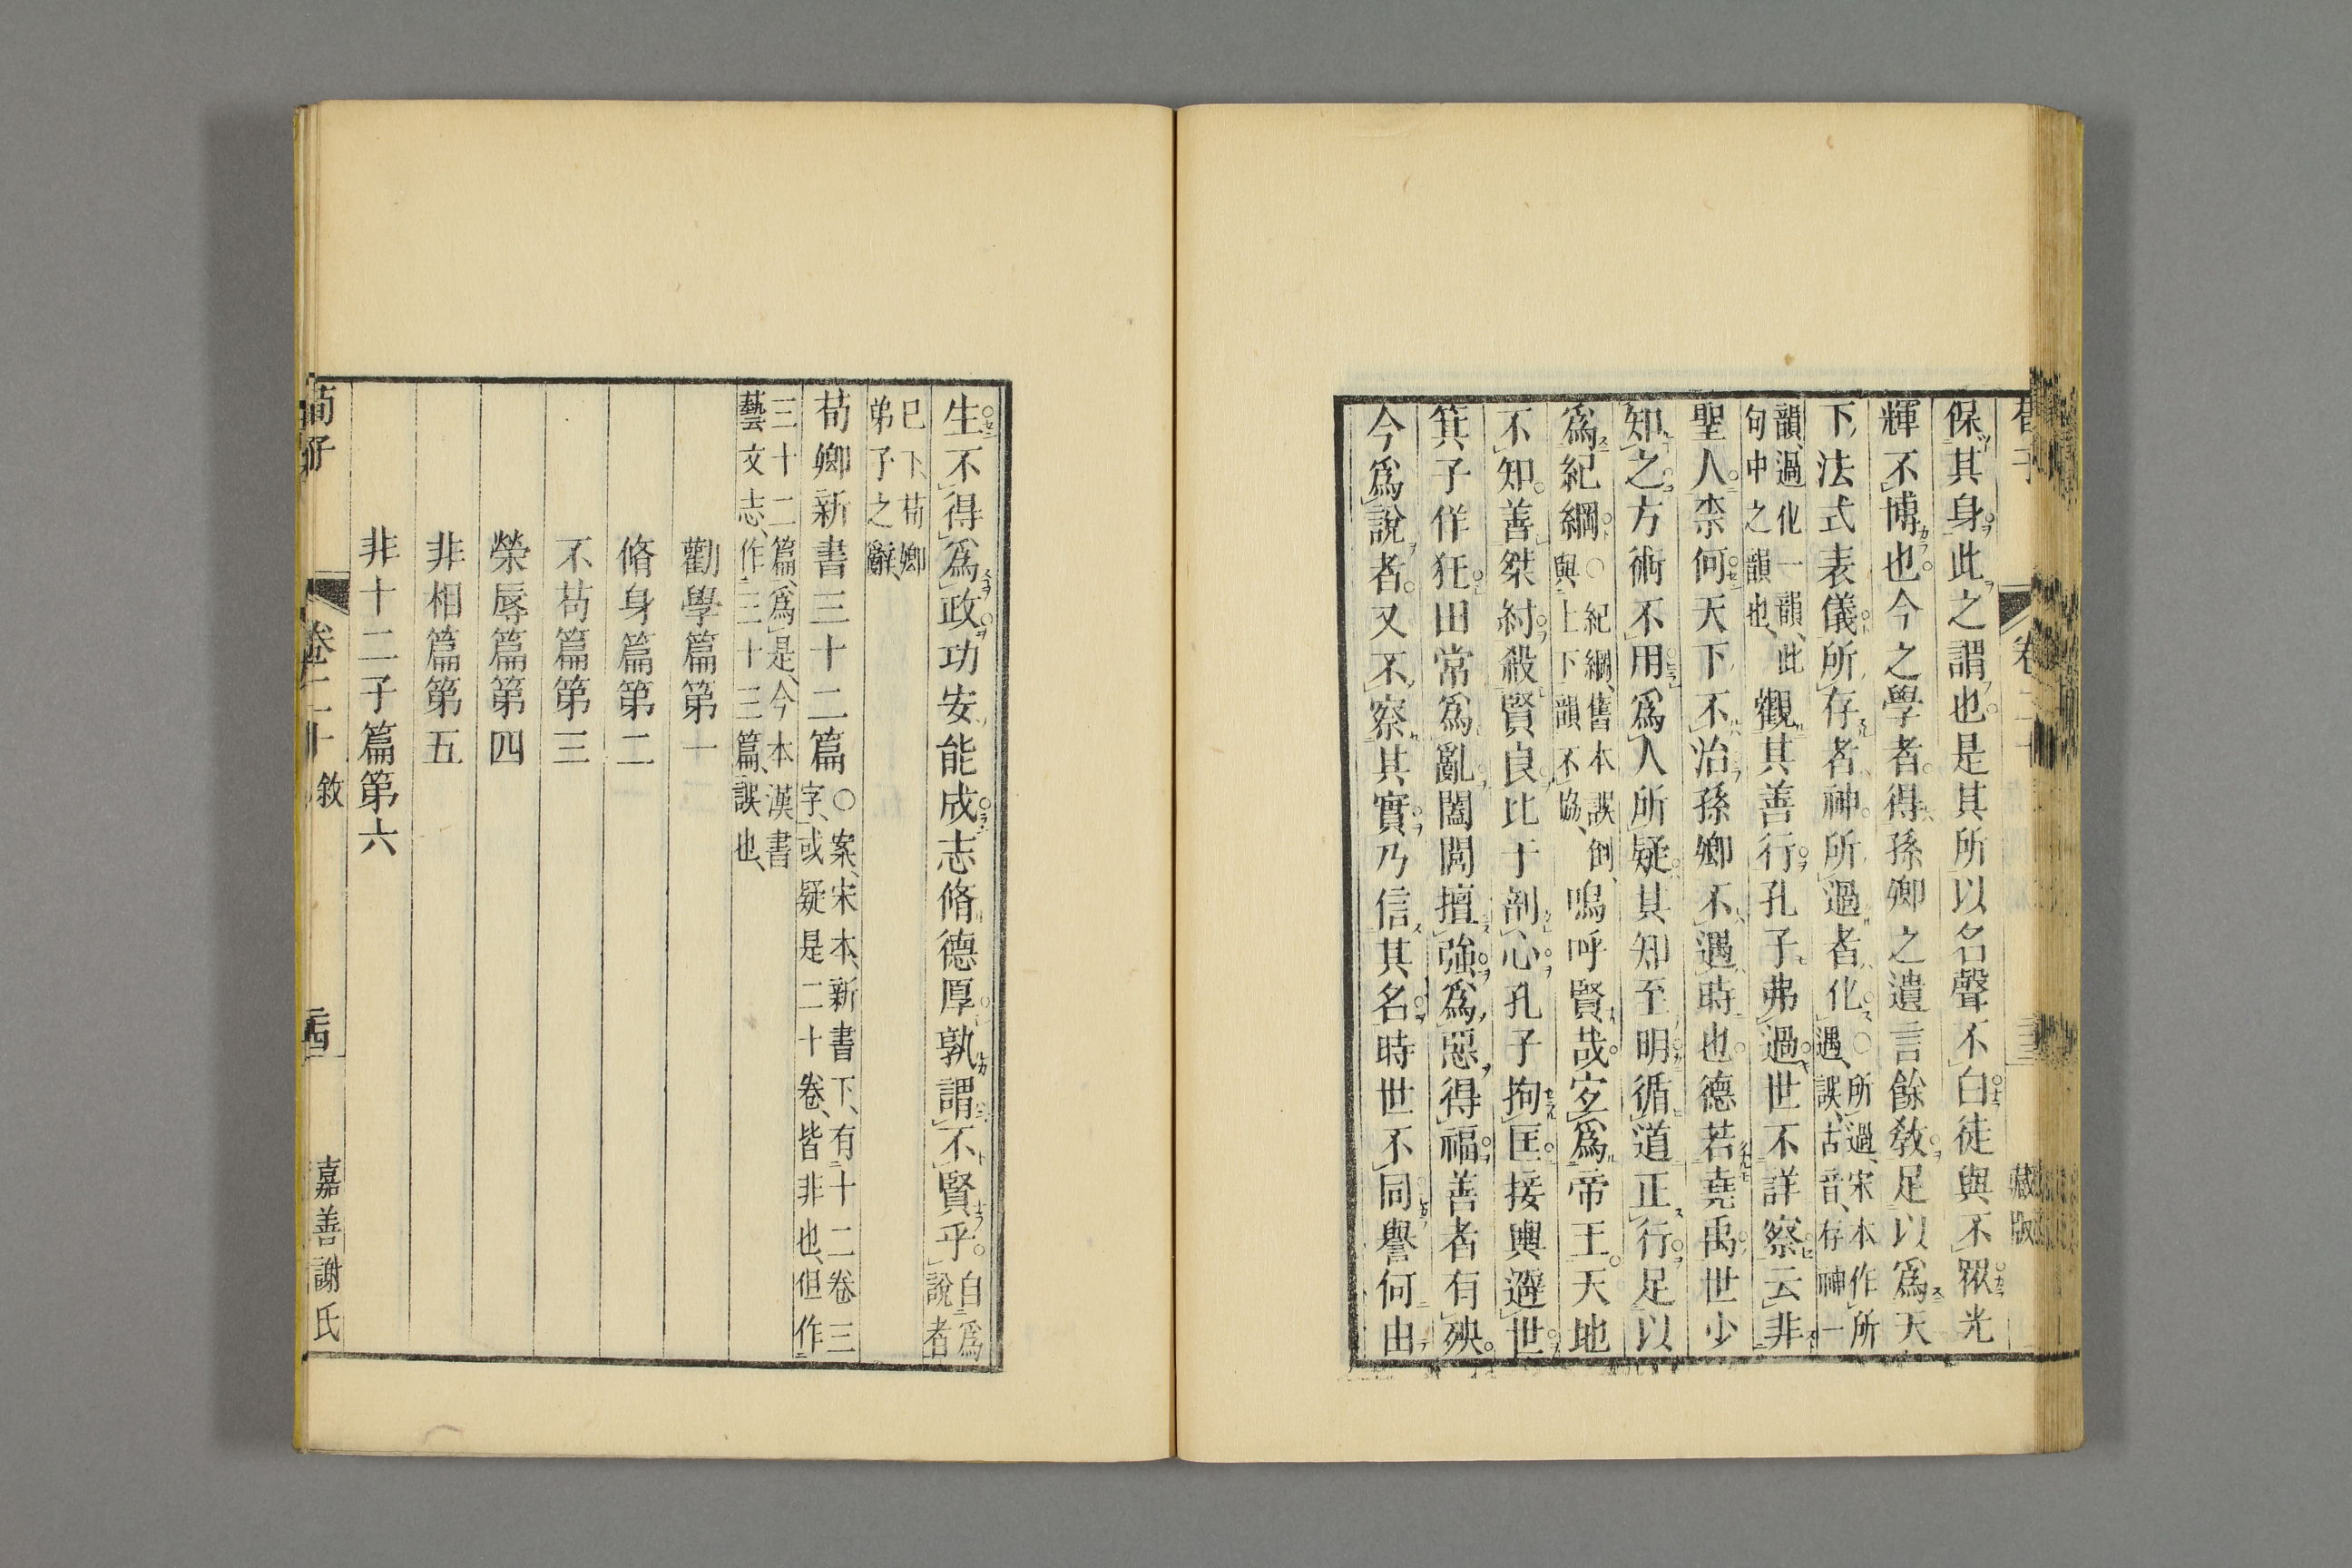 保其身此之謂也是其所以名聲不白徒與不眾光
輝不博也今之學者得孫卿之遺言餘教足以爲天
下法式表儀所存者神所過者化○所過宋本作所
遇誤古音存神一
韻過化一韻此
句中之韻也觀其善行孔子弗過世不詳察云非
聖人柰何天下不治孫卿不遇時也德若堯禹世少
知之方術不用爲人所疑其知至明循道正行足以
爲紀綱○紀綱舊本誤倒
與上下韻不協嗚呼賢哉宐爲帝王天地
不知善桀紂殺賢良比干剖心孔子拘匡接輿避世
箕子佯狂田常爲亂闔閭擅強爲惡得福善者有殃
今爲說者又不察其實乃信其名時世不同譽何由
藏版
生不得爲政功安能成志脩德厚孰謂不賢乎自爲
說者
已下荀卿
弟子之辭
荀卿新書三十二篇○案宋本新書下有十二卷三
字或疑是二十卷皆非也但作
三十二篇爲是今本漢書
藝文志作三十三篇誤也
勸學篇第一
脩身篇第二
不苟篇第三
榮辱篇第四
非相篇第五
非十二子篇第六
荀子 卷二十 敘 嘉善謝氏